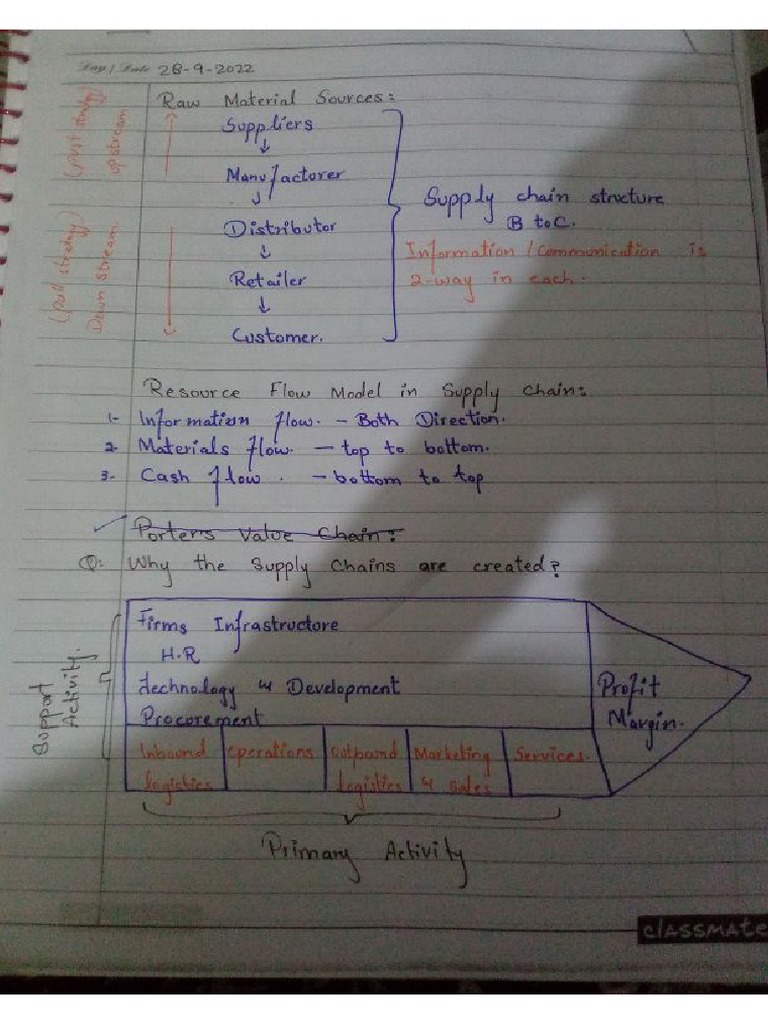 Day / Date 28-9-2022
Raw Material Sources:
Suppliers
Manufacturer
Distributor
Retailer
Customer.
upstream
Down stream
Supply chain structure
B to C.
Information / Communication is
2-way in each.
Resource Flow Model in Supply Chain:
1- Information flow. - Both Direction.
2. Materials flow. - top to bottom.
3- Cash flow. - bottom to top
Porters Value Chain:
Q: Why the Supply Chains are created?
Support
Activity.
Firms Infrastructure
H.R
technology & Development
Procurement
Profit
Margin.
Inbound
logistics
operations
Outbound
logistics
Marketing
& Sales
Services.
Primary Activity
classmate